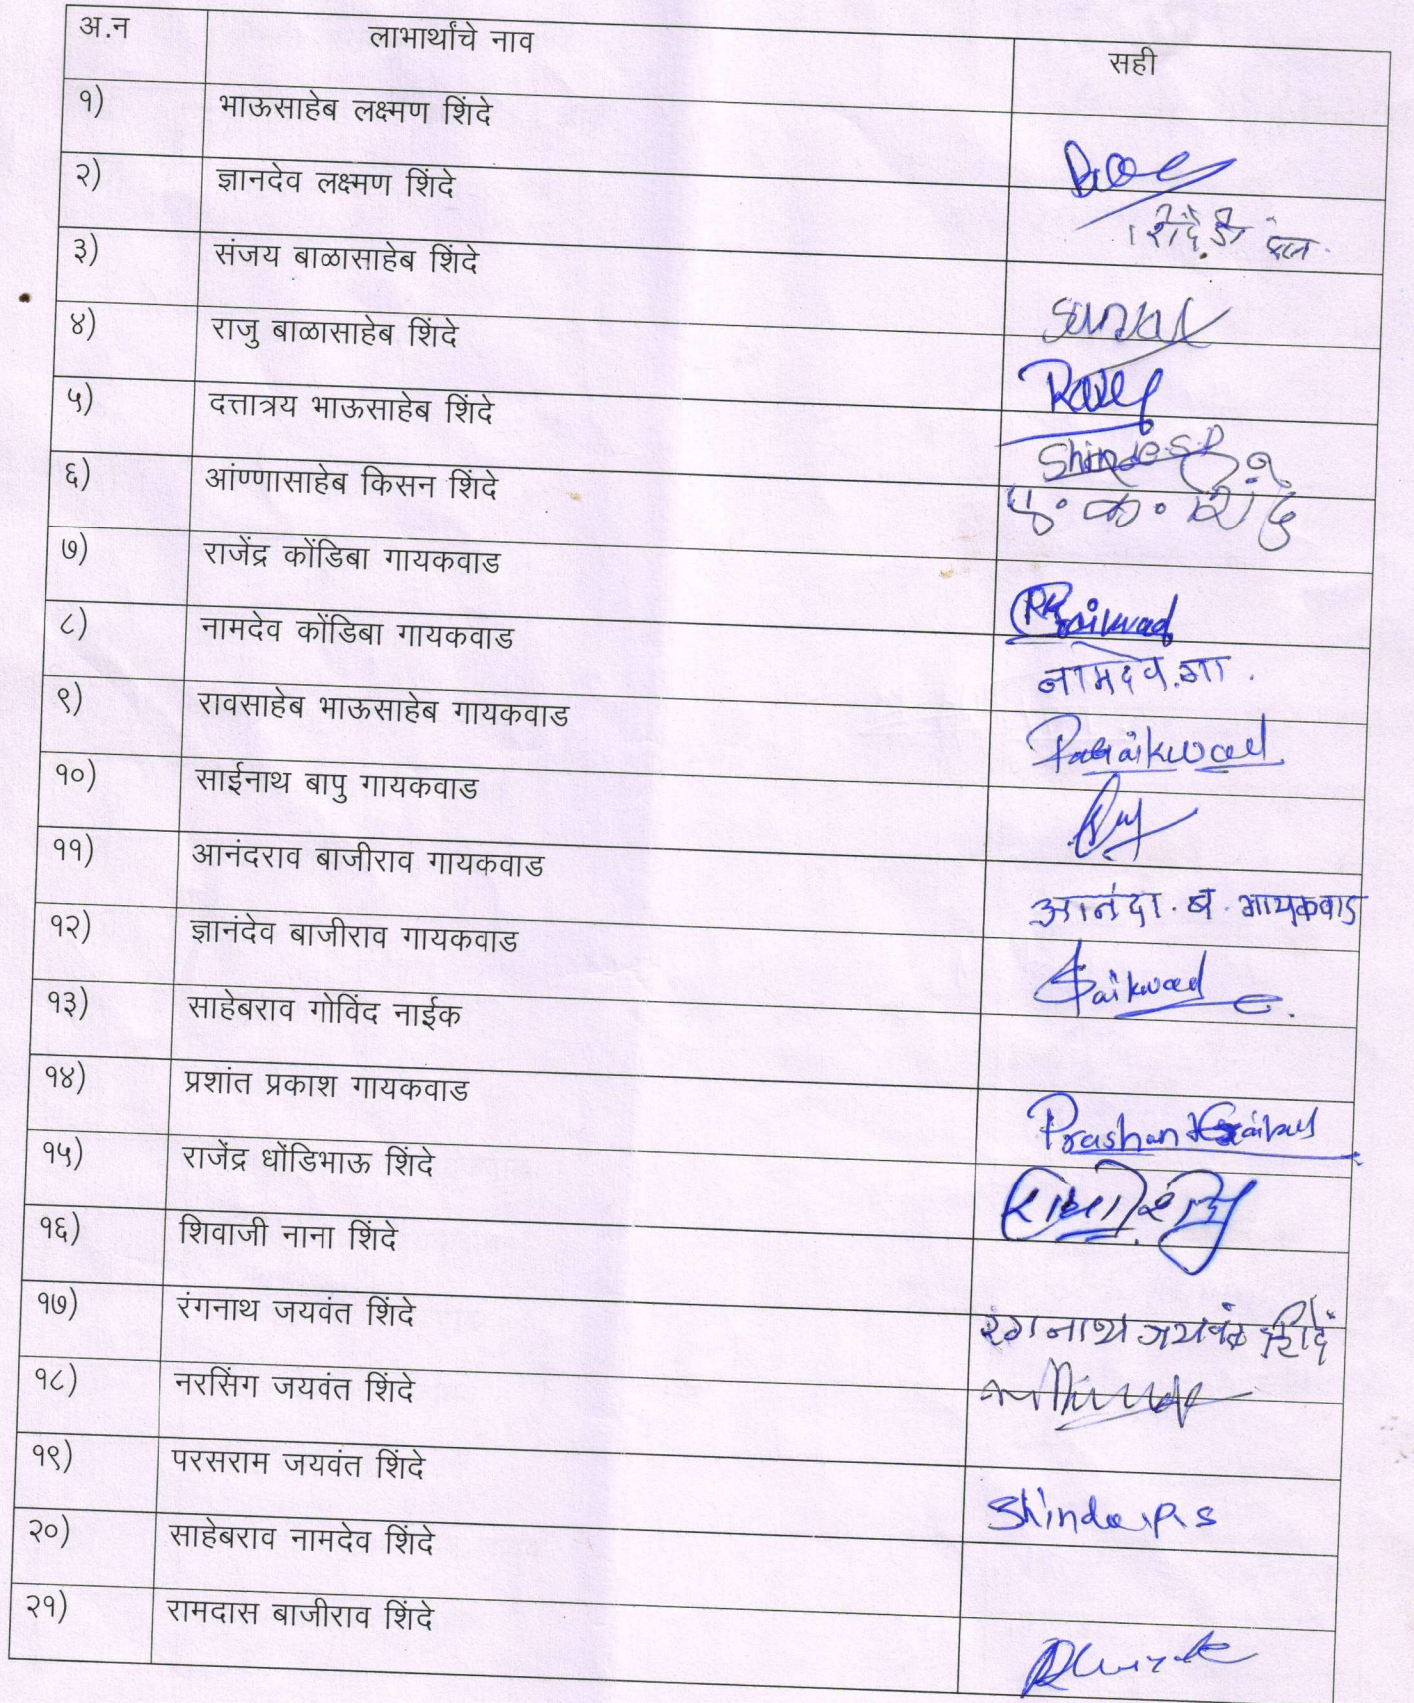 अ.न लाभार्थांचे नाव सही
१) भाऊसाहेब लक्ष्मण शिंदे
२) ज्ञानदेव लक्ष्मण शिंदे
३) संजय बाळासाहेब शिंदे
४) राजु बाळासाहेब शिंदे
५) दत्तात्रय भाऊसाहेब शिंदे Shinde S.D
६) आंण्णासाहेब किसन शिंदे
७) राजेंद्र कोंडिबा गायकवाड RKGaikwad
८) नामदेव कोंडिबा गायकवाड नामदेव.गा.
९) रावसाहेब भाऊसाहेब गायकवाड
१०) साईनाथ बापु गायकवाड
११) आनंदराव बाजीराव गायकवाड आनंदा. ब. गायकवाड
१२) ज्ञानंदेव बाजीराव गायकवाड Gaikwad
१३) साहेबराव गोविंद नाईक
१४) प्रशांत प्रकाश गायकवाड Prashant
१५) राजेंद्र धोंडिभाऊ शिंदे
१६) शिवाजी नाना शिंदे
१७) रंगनाथ जयवंत शिंदे रंगनाथ जयवंत शिंदे
१८) नरसिंग जयवंत शिंदे
१९) परसराम जयवंत शिंदे Shinde P.S
२०) साहेबराव नामदेव शिंदे
२१) रामदास बाजीराव शिंदे